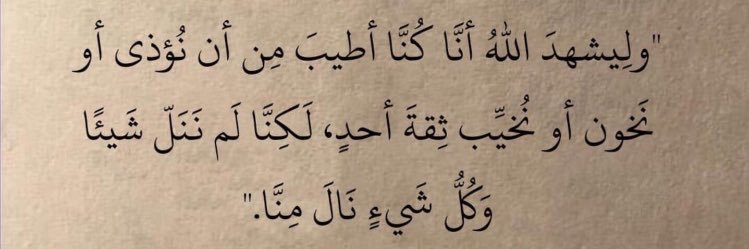 "ولِيشهدَ اللهُ أنَّا كُنَّا أطيبَ مِن أن نُؤذى أو
نَخون أو نُخيِّب ثِقةَ أحدٍ، لَكِنَّا لَم نَنَلّ شَيئًا
وَكُلُّ شَيءٍ نَالَ مِنَّا."